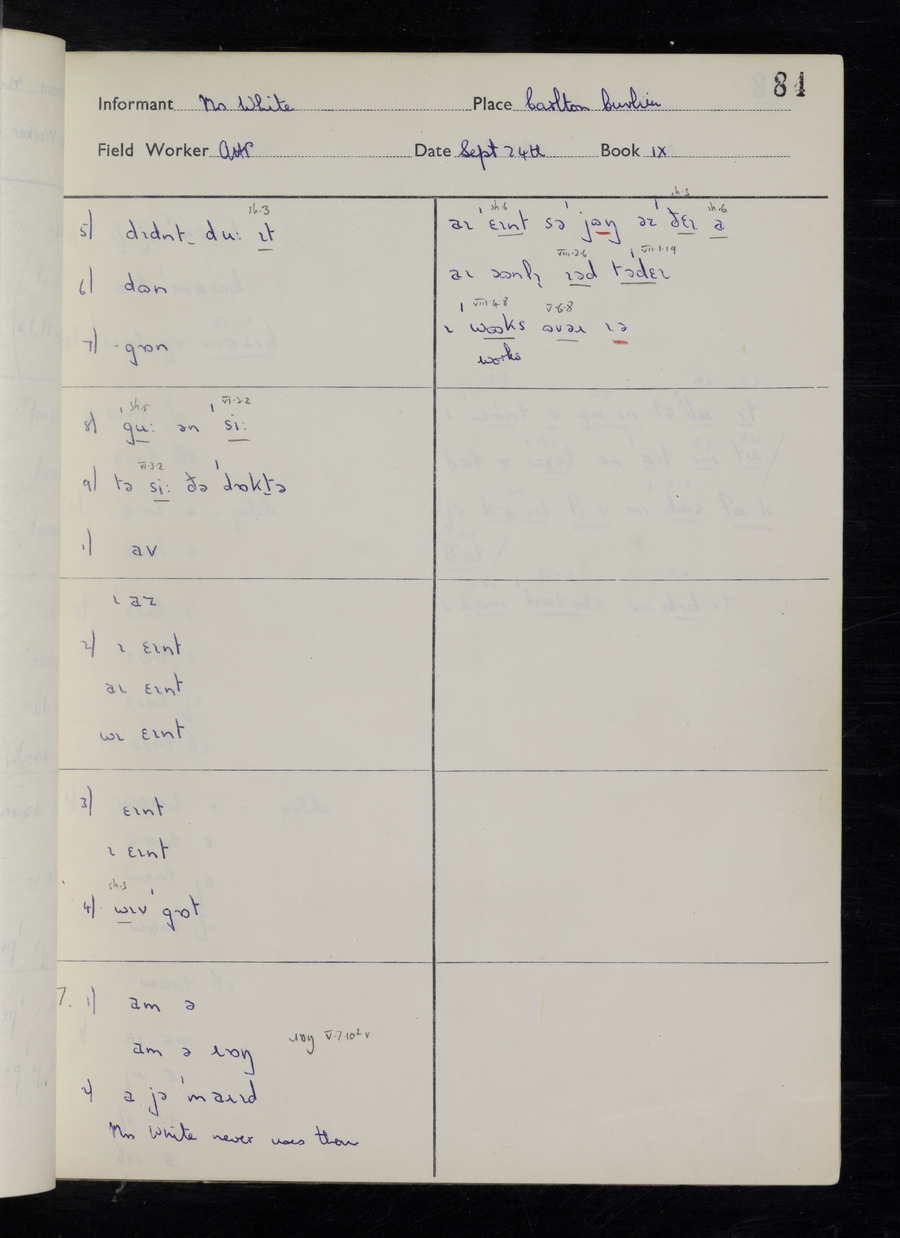 84
Informant Mrs White Place Carlton Curlieu
Field Worker Date Sept 24th Book IX
sh.3
5) dɪdnt_ du: ɪt
6) dɒn
7) gɒn
sh.6 sh.3 sh.6
aɪ ˈɛɪnt sə ˈjɒŋ əz ðɛɪ a
VIII.2.6 VII.1.19
ɪəd təˈdɛɪ
VIII.4.8 V.6.8
ɪ ˈwəʊks ɒvəɪ ɪə
works
sh.5 VI.3.2
8) ˈgu: ən ˈsi:
VI.3.2
9) tə si: ðə ˈdɒktə
1) av
ɪ az
2) ɪ ɛɪnt
aɪ ɛɪnt
wɪ ɛɪnt
3) ɛɪnt
ɪ ɛɪnt
sh.3
4) wɪv ˈgɒt
7. 1) am ə
am ə ɹɒŋ ɹɒŋ V.7.10² v
2) a jə ˈmaɪɪd
Mrs White never uses them